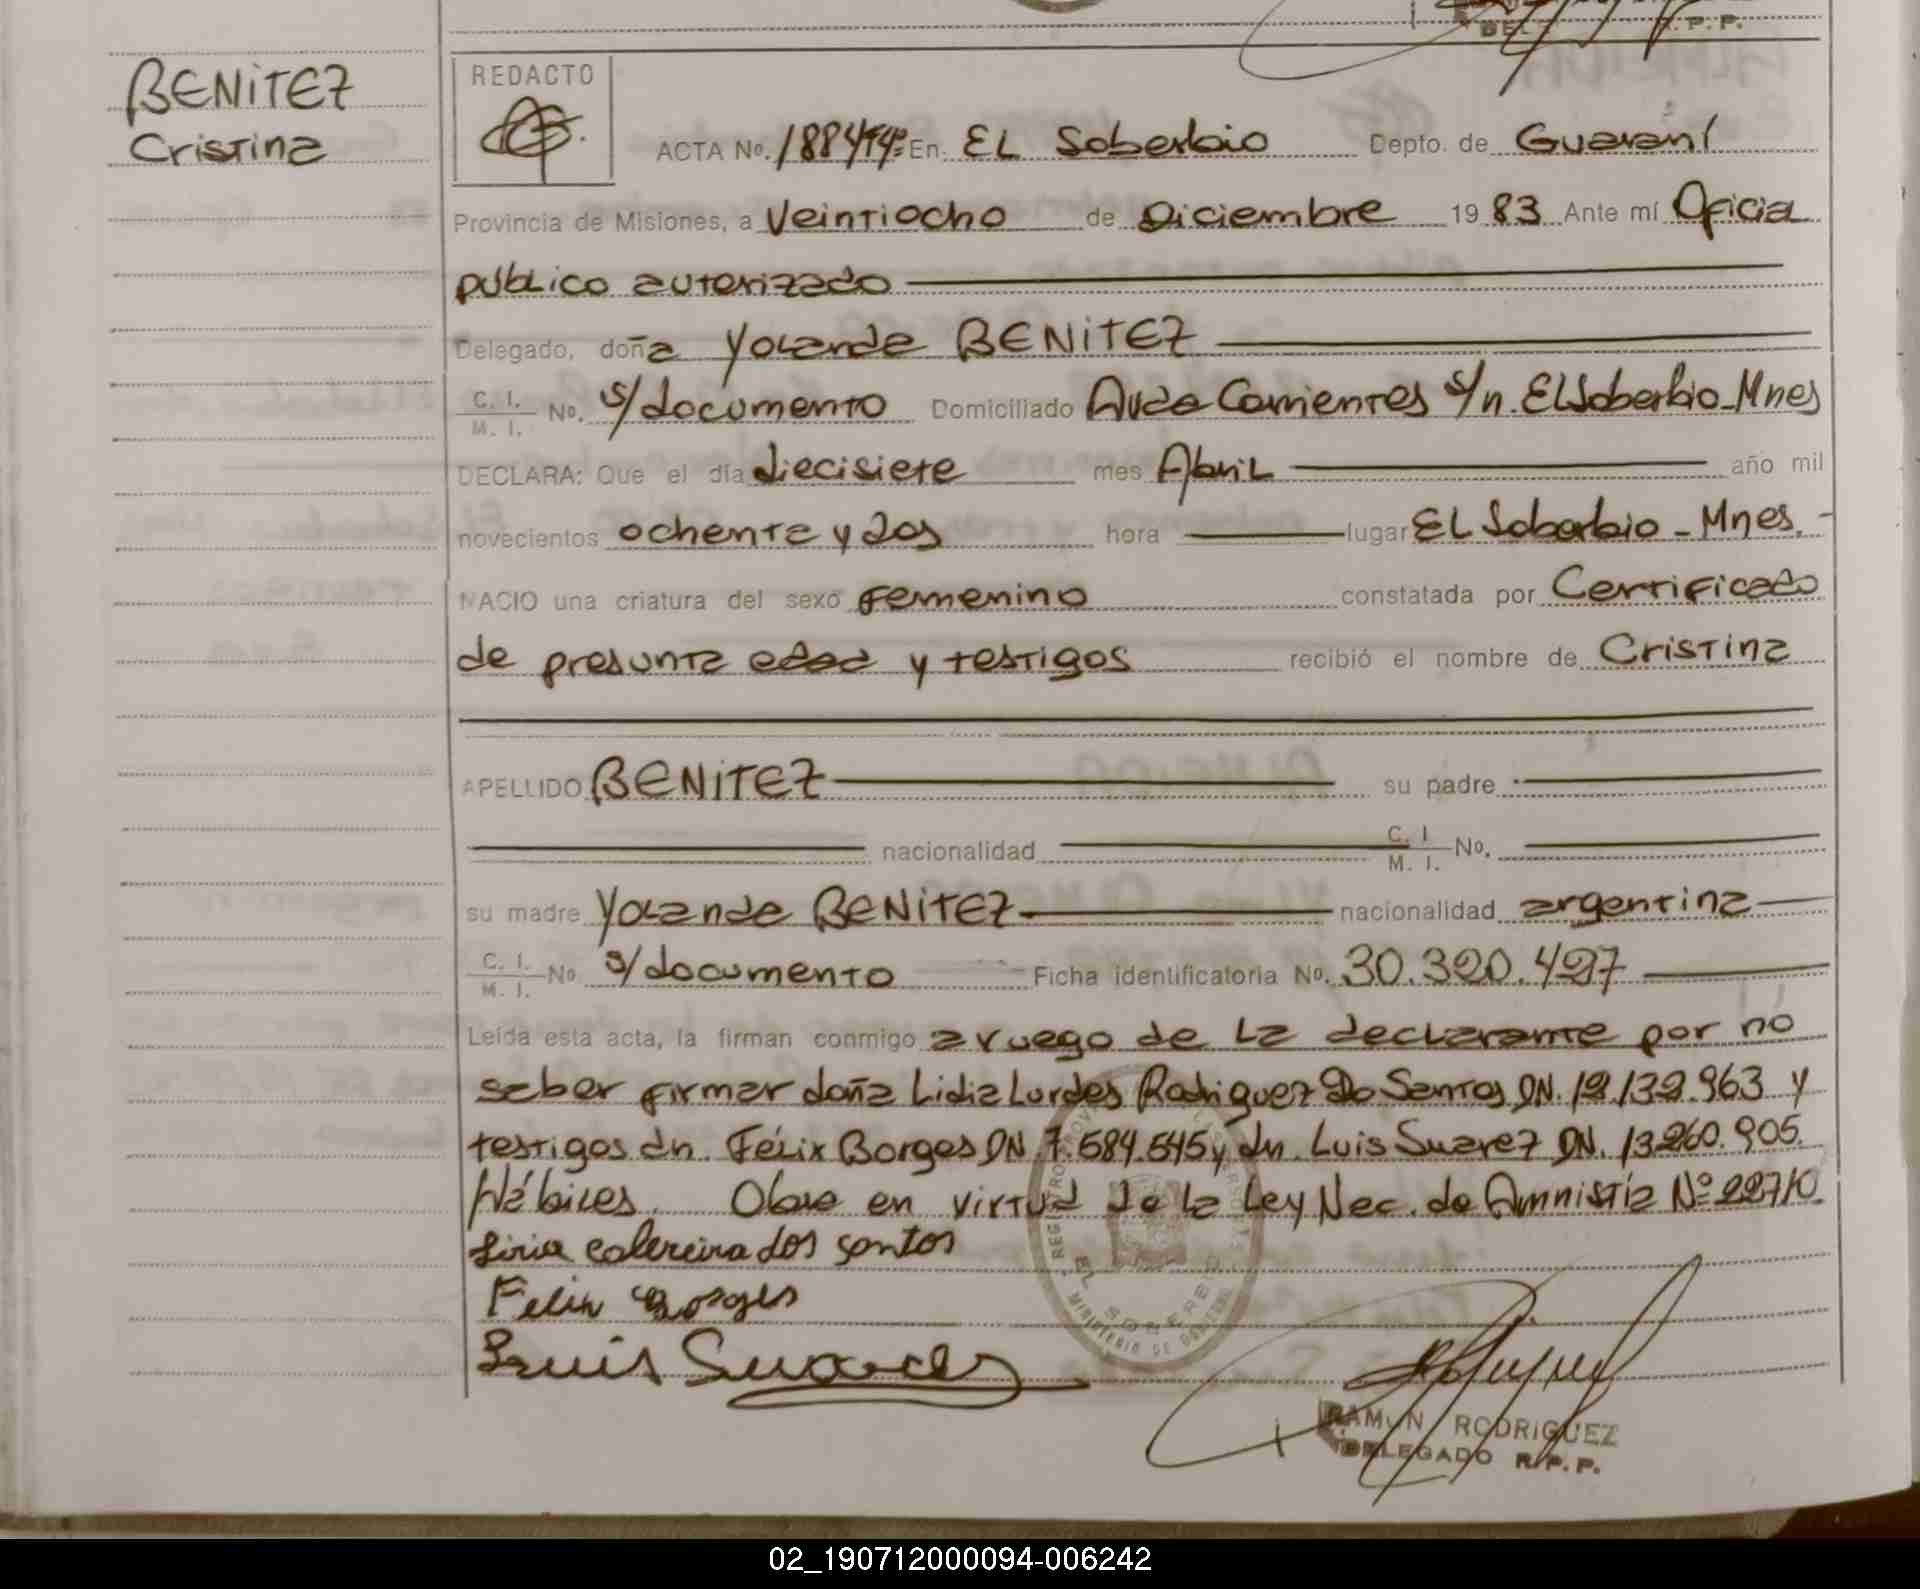 DEL R. P. P.
BENITEZ
Cristina
REDACTO
ACTA No. En EL Soberbio Depto. de Guaraní
Provincia de Misiones, a Veintiocho de Diciembre 19 83 Ante mí Oficial
público autorizado
Delegado, doña Yolanda BENITEZ
C. I. M. I. No. s/documento Domiciliado Avda Corrientes s/n. El Soberbio - Mnes
DECLARA: Que el día diecisiete mes Abril año mil
novecientos ochenta y dos hora lugar EL Soberbio - Mnes.
NACIO una criatura del sexo Femenino constatada por Certificado
de presunta edad y testigos recibió el nombre de Cristina
APELLIDO BENITEZ su padre
nacionalidad C. I. M. I. No.
su madre Yolanda BENITEZ nacionalidad argentina
C. I. M. I. No s/documento Ficha identificatoria No. 30.320.427
Leída esta acta, la firman conmigo a ruego de la declarante por no
saber firmar doña Lidia Lurdes Rodriguez Do Santos DN. 12.132.963 y
testigos dn. Félix Borges DN 7.584.545 y dn. Luis Suarez DN. 13.260.905.
Hábiles. Obra en virtud de la Ley Nac. de Amnistía Nº 22710
dos santos
Felix Borges
Luis Suares
REGISTRO PROV
EL SOBERBIO
MINISTERIO DE GOBIERNO
RAMON RODRIGUEZ
DELEGADO R. P. P.
02_190712000094-006242